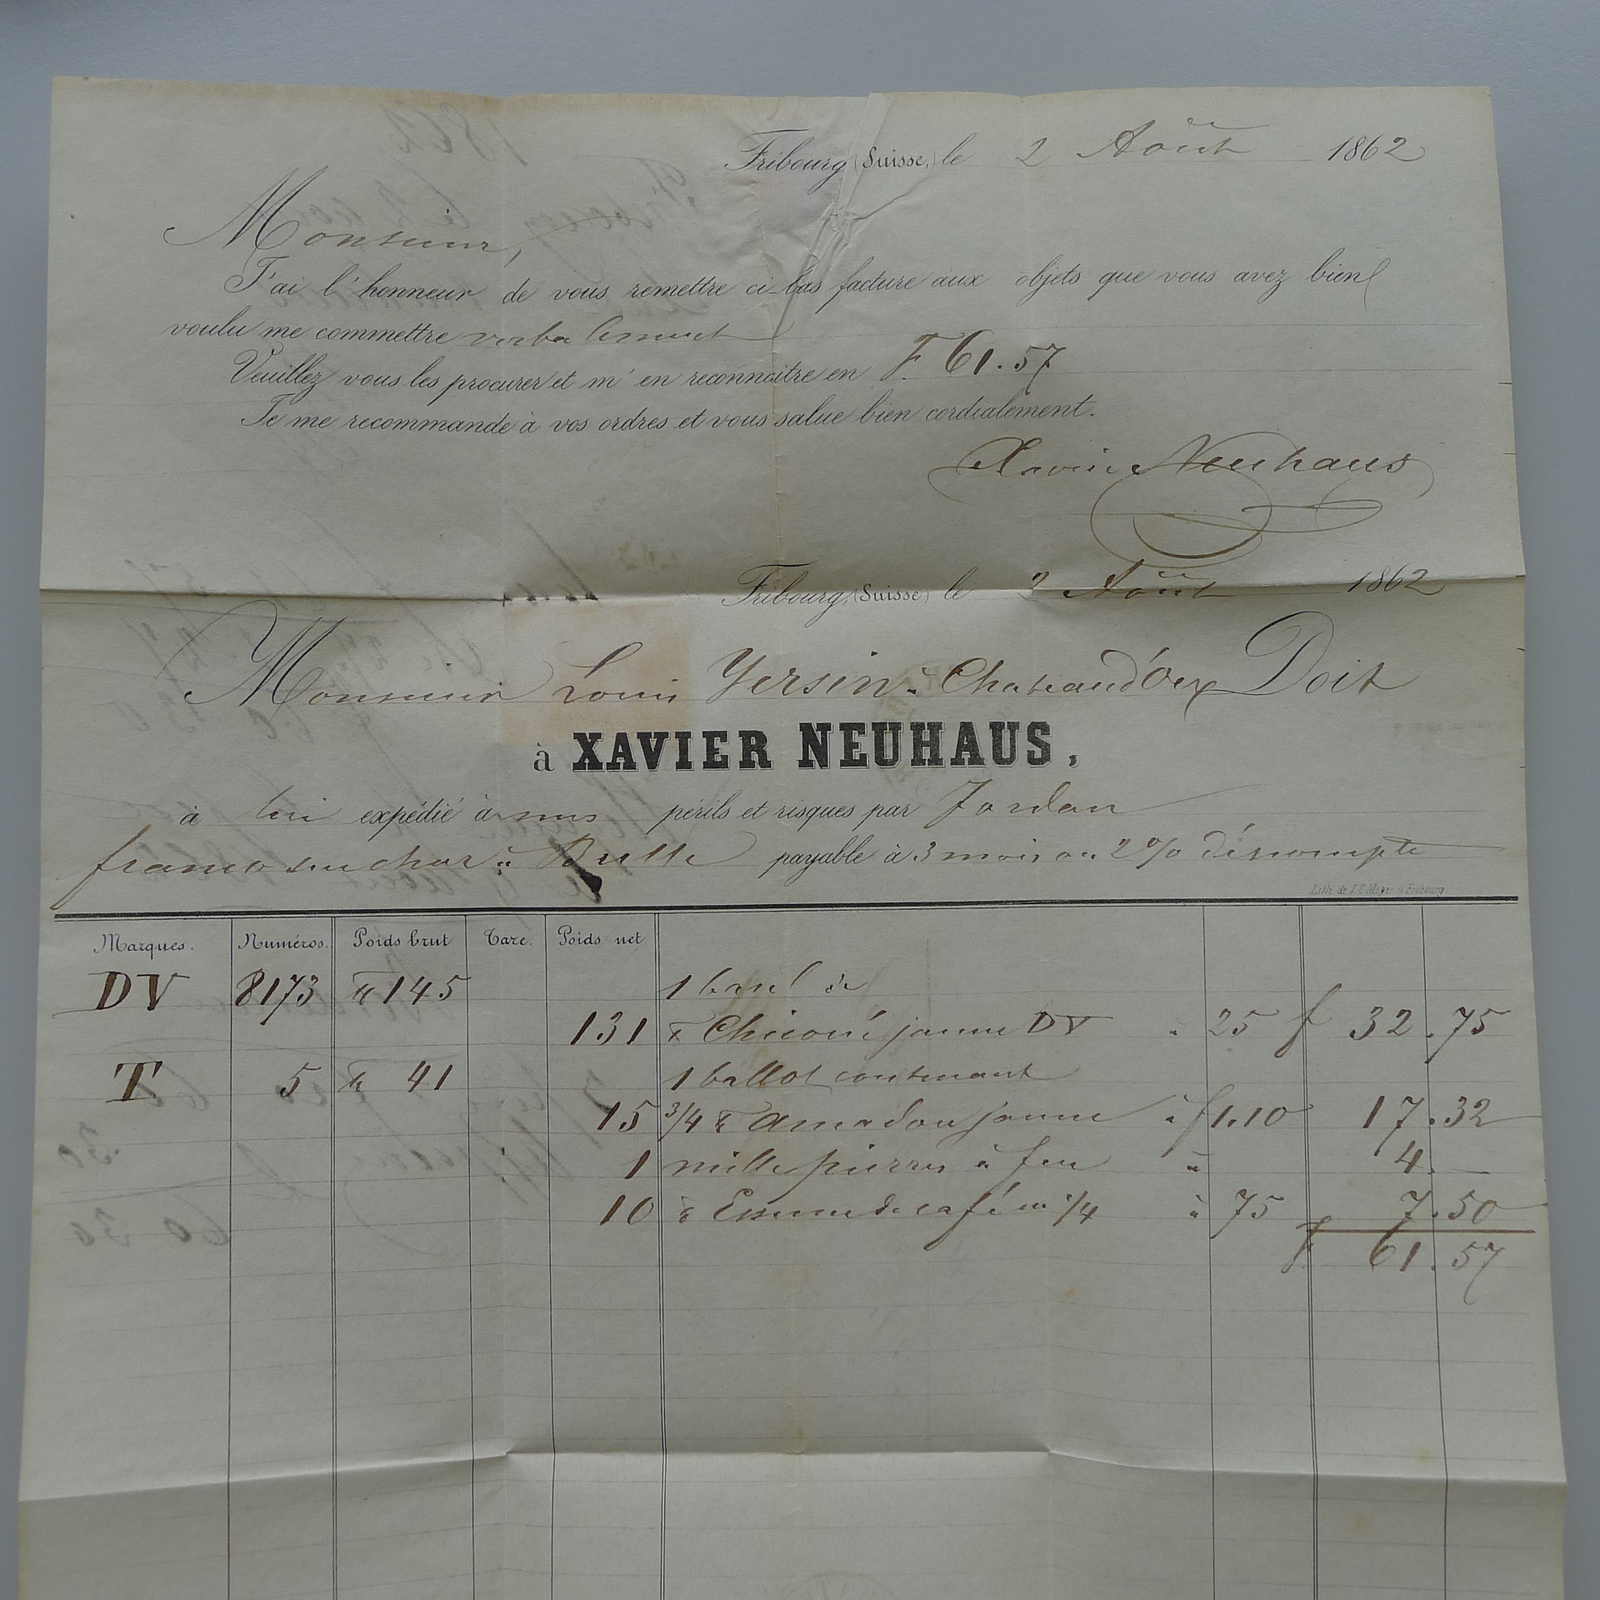 Fribourg (Suisse,) le 2 Août 1862
Monsieur,
J'ai l'honneur de vous remettre ci-bas facture aux objets que vous avez bien
voulu me commettre verbalement
Veuillez vous les procurer et m'en reconnaître en F. 61.57
Je me recommande à vos ordres et vous salue bien cordialement.
Xavier Neuhaus
Fribourg, (Suisse) le 2 Août 1862
Monsieur Louis Yersin à Chateaud'Oex Doit
à XAVIER NEUHAUS,
à lui expédié à ses périls et risques par Jordan
franco sur char à Bulle payable à 3 mois ou 2% d'escompte
Marques. Numéros. Poids brut Tare. Poids net
DV 8173 ℔ 145 1 baril de
131 ℔ Chicorée jaune DV à 25 f 32.75
T 5 ℔ 41 1 ballot contenant
15 3/4 ℔ Amadou jaune à f 1.10 17.32
1 mille pierres à feu à 4.—
10 ℔ Essence de café en 1/4 à 75 7.50
F. 61.57